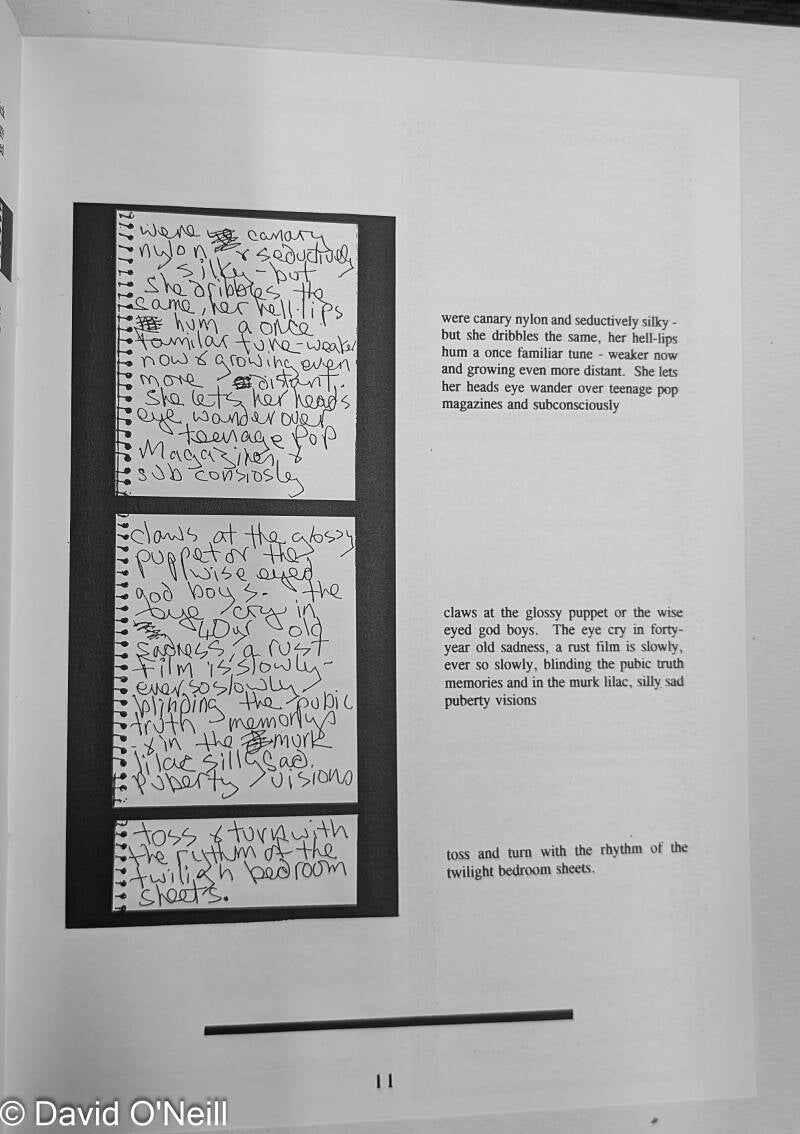 were canary
nylon & seductively
silky - but
she dribbles the
same, her hell-lips
hum a once
familar tune - weaker
now & growing even
more distant.
She lets her heads
eye wander over
teenage pop
magazines &
sub consiosly
were canary nylon and seductively silky -
but she dribbles the same, her hell-lips
hum a once familiar tune - weaker now
and growing even more distant. She lets
her heads eye wander over teenage pop
magazines and subconsciously
claws at the glossy
puppet or the
wise eyed
god boys. the
eye cry in
40ur old
sadness, a rust
film is slowly -
ever so slowly
blinding the pubic
truth memorys
& in the murk
lilac silly sad.
puberty visions
claws at the glossy puppet or the wise
eyed god boys. The eye cry in forty-
year old sadness, a rust film is slowly,
ever so slowly, blinding the pubic truth
memories and in the murk lilac, silly sad
puberty visions
toss & turn with
the rythm of the
twiligh bedroom
sheets.
toss and turn with the rhythm of the
twilight bedroom sheets.
11
© David O'Neill